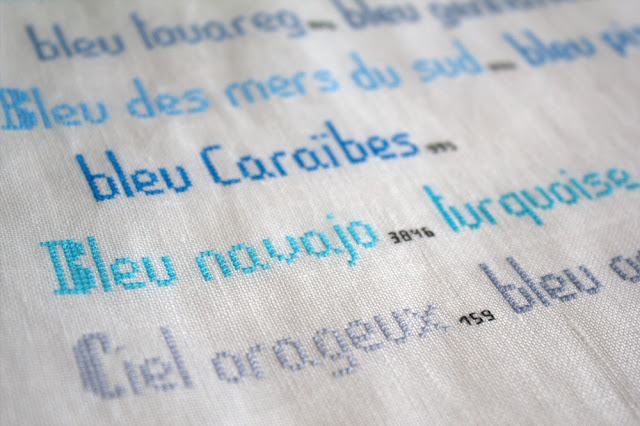 bleu touareg bleu
Bleu des mers du sud bleu
bleu Caraïbes 995
Bleu navajo 3846 turquoise
Ciel orageux 159 bleu